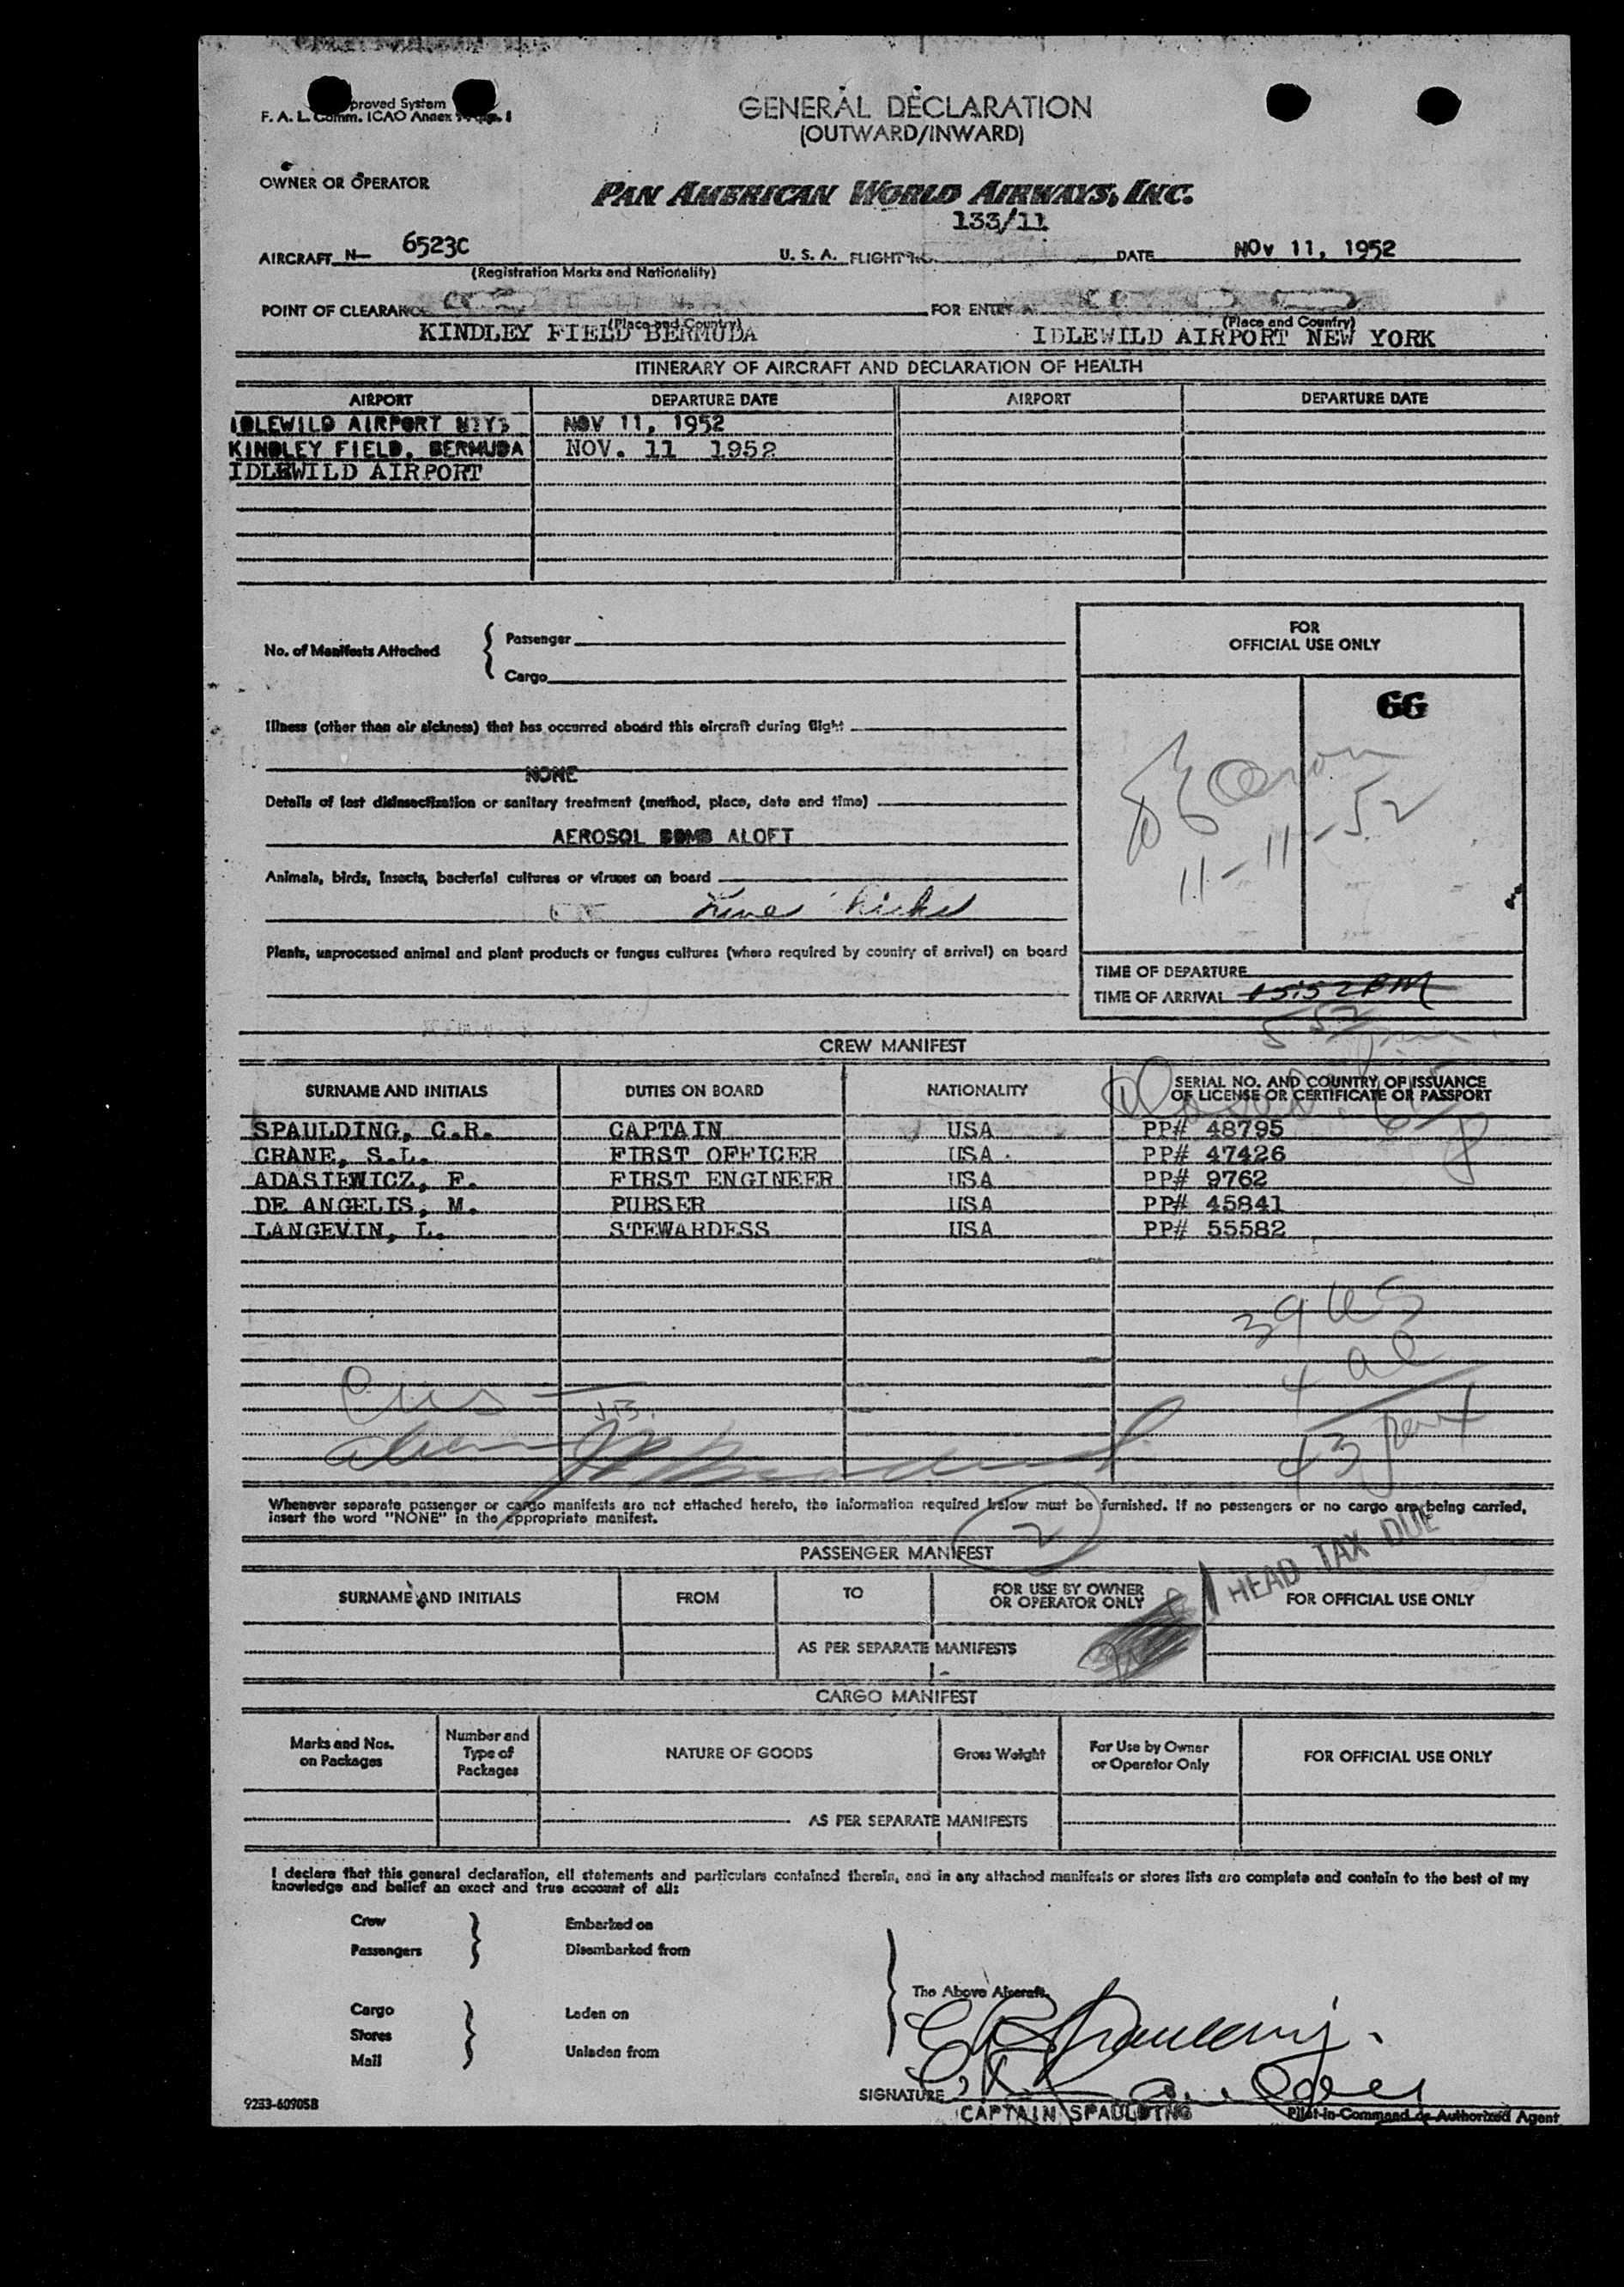 proved System
F. A. L. Comm. ICAO Annex
GENERAL DECLARATION
(OUTWARD/INWARD)
OWNER OR OPERATOR
PAN AMERICAN WORLD AIRWAYS, INC.
133/11
AIRCRAFT N— 6523C U. S. A. FLIGHT DATE NOV 11, 1952
(Registration Marks and Nationality)
POINT OF CLEARANCE FOR ENTRY
(Place and Country) (Place and Country)
KINDLEY FIELD BERMUDA IDLEWILD AIRPORT NEW YORK
ITINERARY OF AIRCRAFT AND DECLARATION OF HEALTH
AIRPORT DEPARTURE DATE AIRPORT DEPARTURE DATE
IDLEWILD AIRPORT NOV 11, 1952
KINDLEY FIELD, BERMUDA NOV. 11 1952
IDLEWILD AIRPORT
No. of Manifests Attached
Passenger
Cargo
Illness (other than air sickness) that has occurred aboard this aircraft during flight
NONE
Details of last disinsectization or sanitary treatment (method, place, date and time)
AEROSOL BOMB ALOFT
Animals, birds, insects, bacterial cultures or viruses on board
Plants, unprocessed animal and plant products or fungus cultures (where required by country of arrival) on board
FOR
OFFICIAL USE ONLY
66
11-11-52
TIME OF DEPARTURE
TIME OF ARRIVAL 5:52 PM
5 52
CREW MANIFEST
SURNAME AND INITIALS DUTIES ON BOARD NATIONALITY SERIAL NO. AND COUNTRY OF ISSUANCE
OF LICENSE OR CERTIFICATE OR PASSPORT
SPAULDING, C.R. CAPTAIN USA PP# 48795
CRANE, S.L. FIRST OFFICER USA PP# 47426
ADASIEWICZ, F. FIRST ENGINEER USA PP# 9762
DE ANGELIS, M. PURSER USA PP# 45841
LANGEVIN, L. STEWARDESS USA PP# 55582
39 US
4 al
43
Whenever separate passenger or cargo manifests are not attached hereto, the information required below must be furnished. If no passengers or no cargo are being carried,
insert the word "NONE" in the appropriate manifest.
2
HEAD TAX DUE
PASSENGER MANIFEST
SURNAME AND INITIALS FROM TO FOR USE BY OWNER
OR OPERATOR ONLY FOR OFFICIAL USE ONLY
AS PER SEPARATE MANIFESTS
CARGO MANIFEST
Marks and Nos.
on Packages
Number and
Type of
Packages
NATURE OF GOODS
Gross Weight
For Use by Owner
or Operator Only
FOR OFFICIAL USE ONLY
AS PER SEPARATE MANIFESTS
I declare that this general declaration, all statements and particulars contained therein, and in any attached manifests or stores lists are complete and contain to the best of my
knowledge and belief an exact and true account of all:
Crew Embarked on
Passengers Disembarked from
The Above Aircraft.
Cargo Laden on
Stores
Mail Unladen from
C R Spaulding.
SIGNATURE
CAPTAIN SPAULDING
Pilot-in-Command or Authorized Agent
9233-60905B